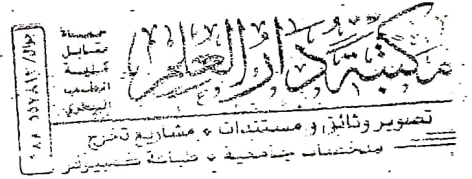 مكتبة دار العلم
مقابل
كلية
الطب
البيطري
تصوير وثائق و مستندات * مشاريع تخرج
ملخصات جامعية * طباعة كمبيوتر